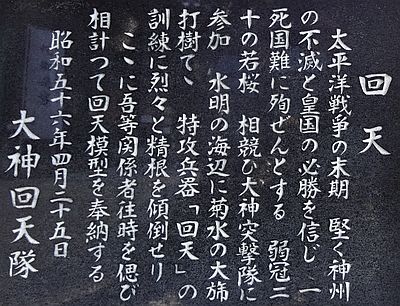 回天
太平洋戦争の末期 堅く神州
の不滅と皇国の必勝を信じ 一
死国難に殉せんとする 弱冠二
十の若桜 相競ひ大神突撃隊に
参加 水明の海辺に菊水の大旆
打樹てゝ 特攻兵器「回天」の
訓練に烈々と精根を傾倒せり
こゝに吾等関係者往時を偲び
相計つて回天模型を奉納する
昭和五十六年四月二十五日
大神回天隊